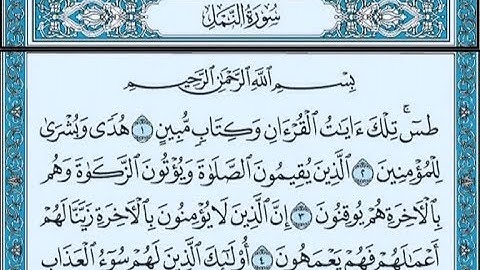 سُورَةُ النَّمْلِ
بِسْمِ اللَّهِ الرَّحْمَٰنِ الرَّحِيمِ
طسٓ ۚ تِلْكَ ءَايَٰتُ الْقُرْءَانِ وَكِتَابٍ مُّبِينٍ ١ هُدًى وَبُشْرَىٰ
لِلْمُؤْمِنِينَ ٢ الَّذِينَ يُقِيمُونَ الصَّلَوٰةَ وَيُؤْتُونَ الزَّكَوٰةَ وَهُم
بِالْءَاخِرَةِ هُمْ يُوقِنُونَ ٣ إِنَّ الَّذِينَ لَا يُؤْمِنُونَ بِالْءَاخِرَةِ زَيَّنَّا لَهُمْ
أَعْمَٰلَهُمْ فَهُمْ يَعْمَهُونَ ٤ أُو۟لَٰٓئِكَ الَّذِينَ لَهُمْ سُوٓءُ الْعَذَابِ